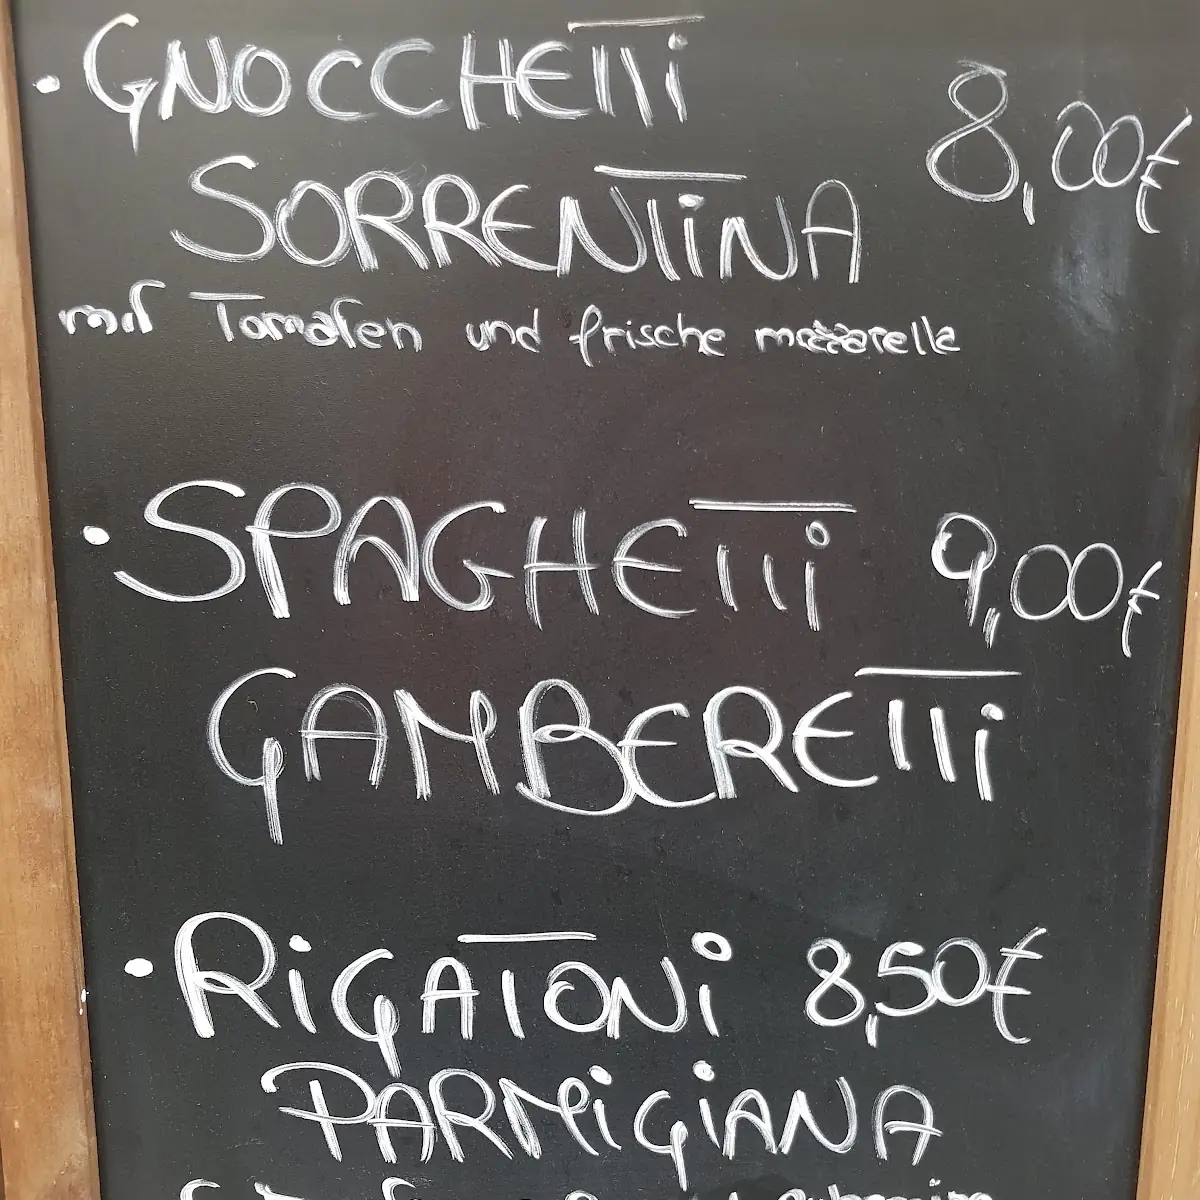 · GNOCCHETTi
8,00€
SORRENTiNA
mit Tomaten und frische mozzarella
· SPAGHETTi 9,00€
GAMBERETTi
· RiGATONi 8,50€
PARMiGiANA